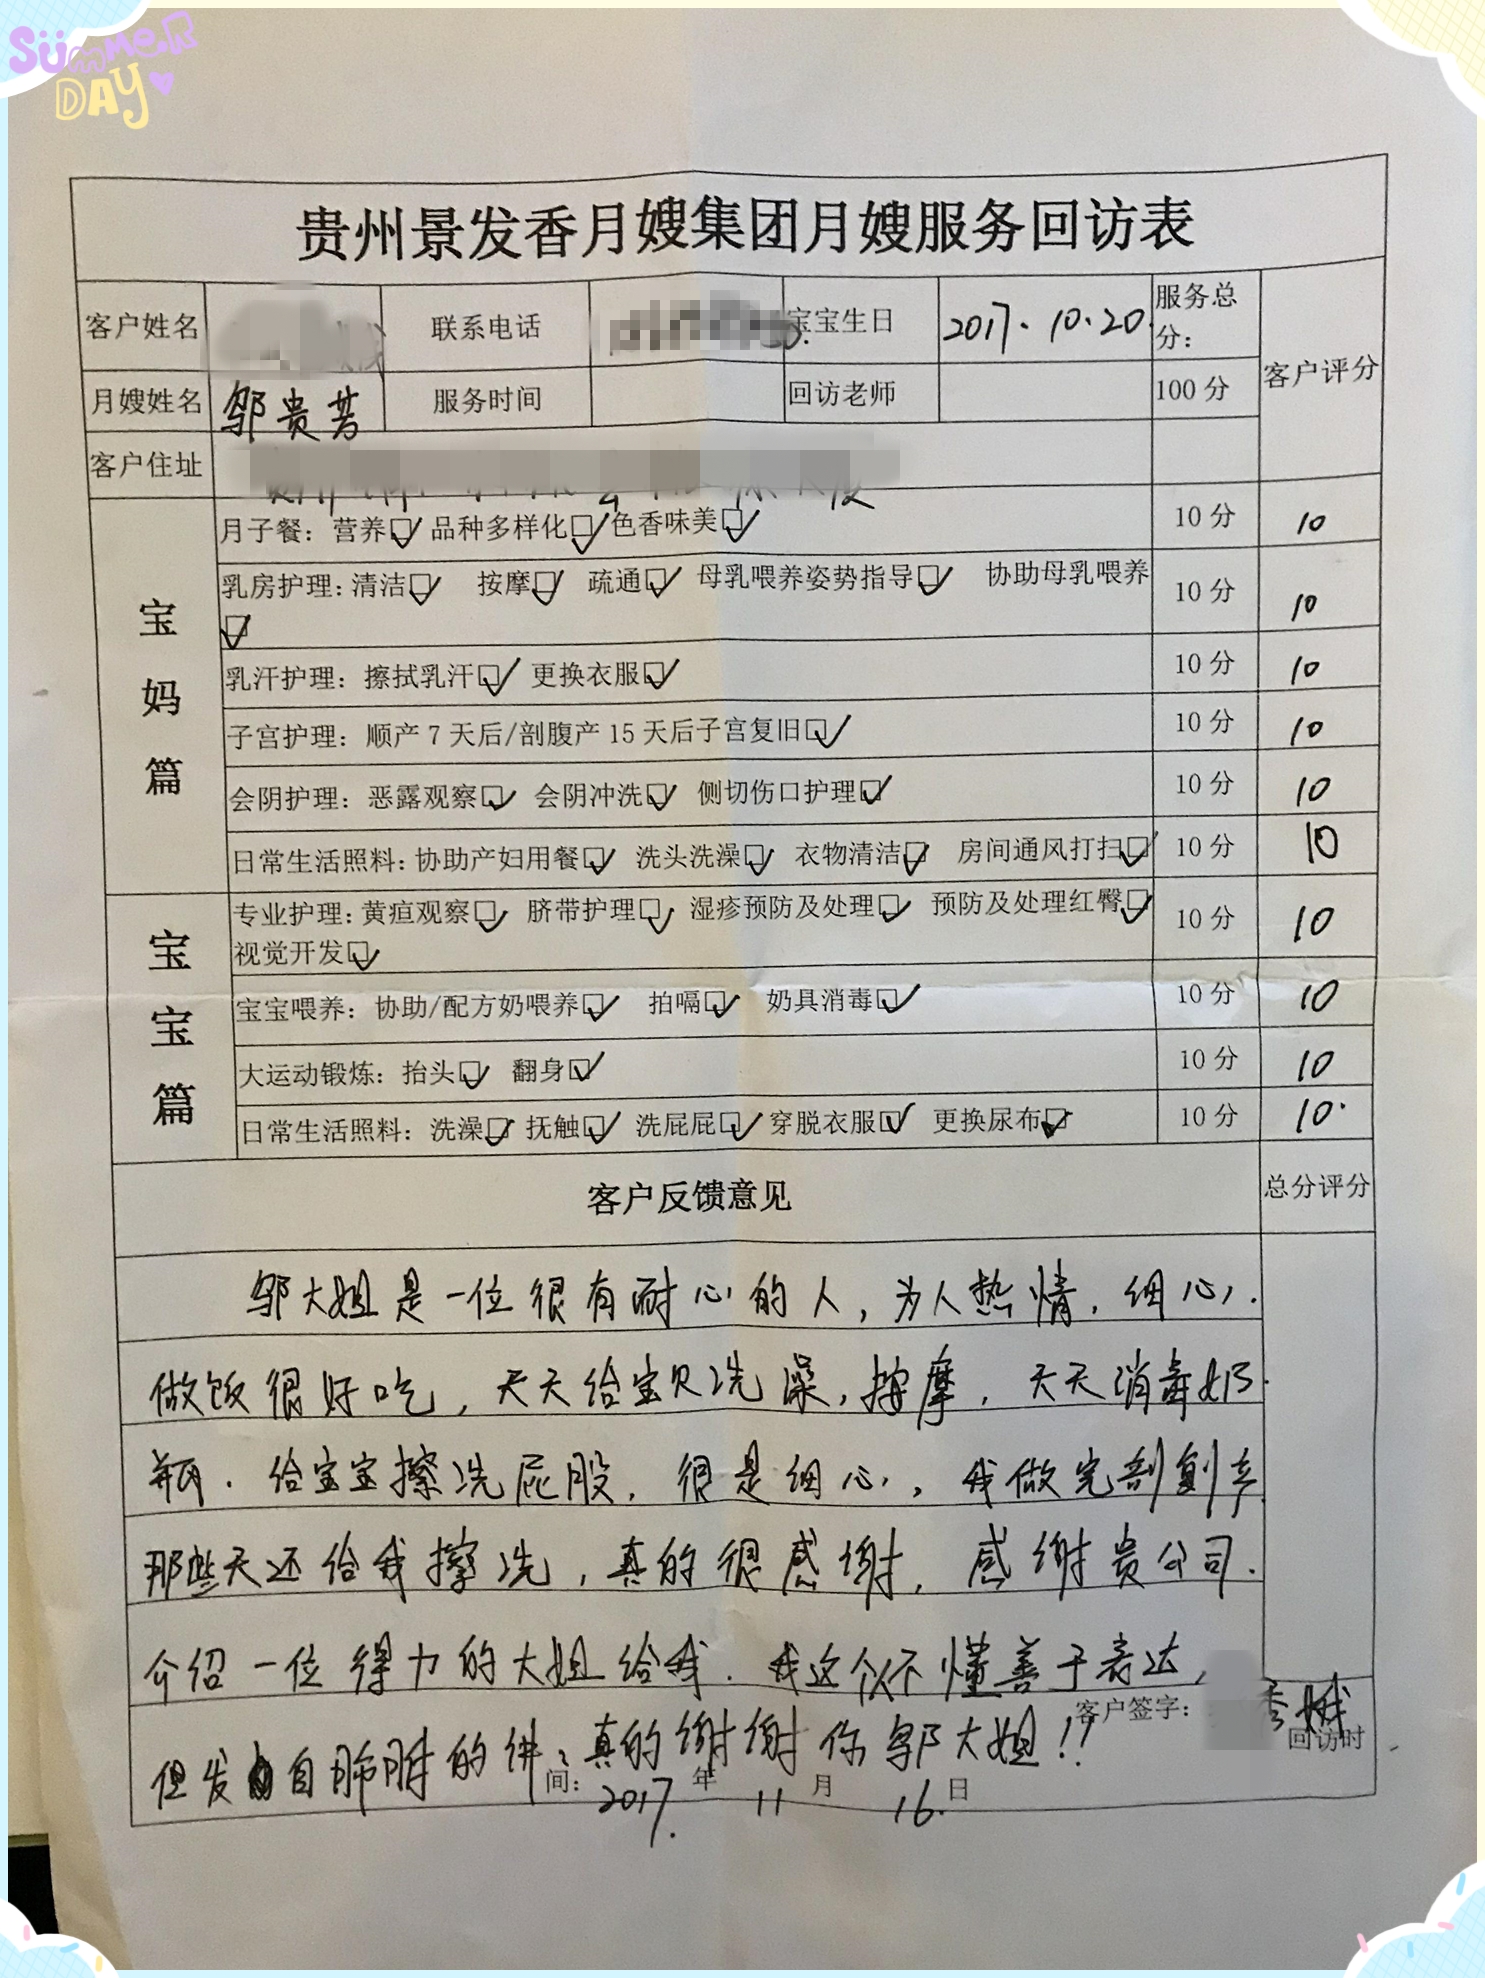 SUMMER
DAY
贵州景发香月嫂集团月嫂服务回访表
客户姓名 联系电话 宝宝生日 2017.10.20. 服务总分： 客户评分
月嫂姓名 邬贵芳 服务时间 回访老师 100分
客户住址
宝妈篇
月子餐：营养☑ 品种多样化☑ 色香味美☑ 10分 10
乳房护理：清洁☑ 按摩☑ 疏通☑ 母乳喂养姿势指导☑ 协助母乳喂养 10分 10
☑
乳汗护理：擦拭乳汗☑ 更换衣服☑ 10分 10
子宫护理：顺产7天后/剖腹产15天后子宫复旧☑ 10分 10
会阴护理：恶露观察☑ 会阴冲洗☑ 侧切伤口护理☑ 10分 10
日常生活照料：协助产妇用餐☑ 洗头洗澡☑ 衣物清洁☑ 房间通风打扫☑ 10分 10
宝宝篇
专业护理：黄疸观察☑ 脐带护理☑ 湿疹预防及处理☑ 预防及处理红臀☑ 10分 10
视觉开发☑
宝宝喂养：协助/配方奶喂养☑ 拍嗝☑ 奶具消毒☑ 10分 10
大运动锻炼：抬头☑ 翻身☑ 10分 10
日常生活照料：洗澡☑ 抚触☑ 洗屁屁☑ 穿脱衣服☑ 更换尿布☑ 10分 10
客户反馈意见 总分评分
邬大姐是一位很有耐心的人，为人热情，细心，
做饭很好吃，天天给宝贝洗澡，按摩，天天消毒奶
瓶．给宝宝擦洗屁股，很是细心，我做完剖剖产
那些天还给我擦洗，真的很感谢，感谢贵公司．
介绍一位得力的大姐给我．我这个人不懂善于表达，
客户签字： 秀娥
但发自肺腑的讲：真的谢谢你邬大姐!!
回访时
间：2017.年 11 月 16.日